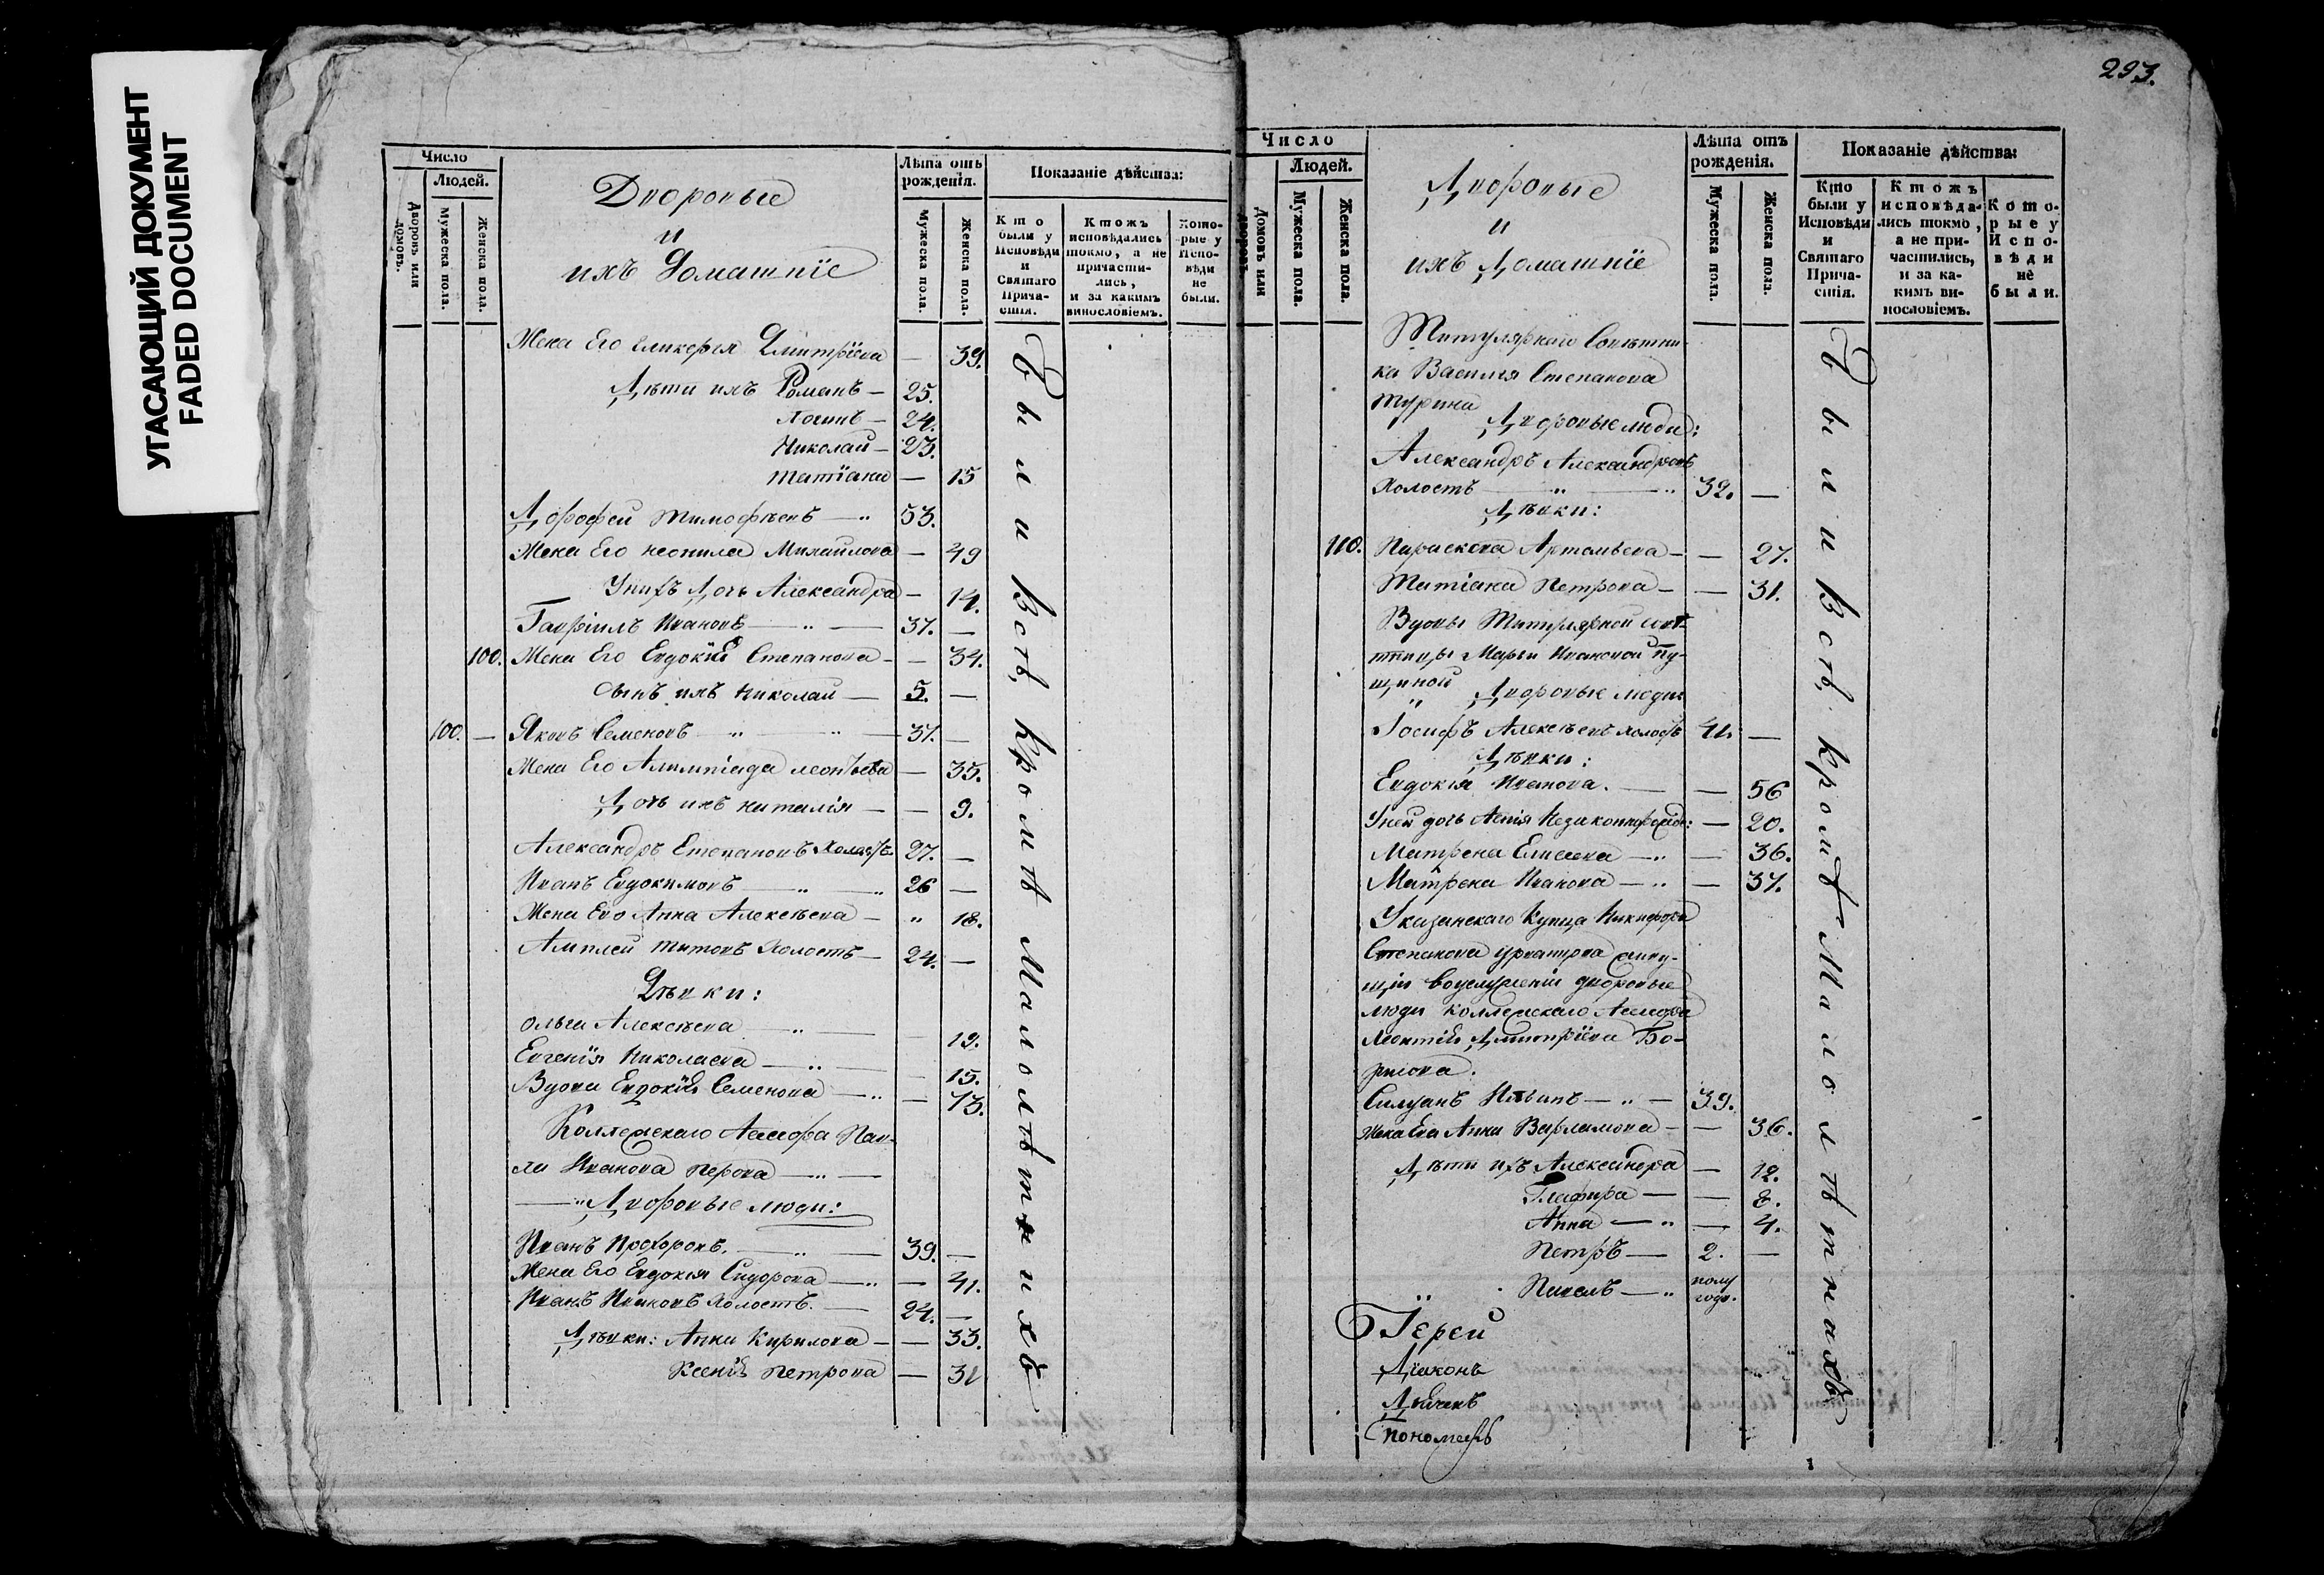 УГАСАЮЩИЙ ДОКУМЕНТ
FADED DOCUMENT
Число
Людей.
Дворовъ или домовъ.
Мужеска пола.
Женска пола.
Дворовые
и
ихъ Домашніе
Лѣта отъ рожденія.
Мужеска пола.
Женска пола.
Показаніе дѣйства:
Кто были у Исповѣди и Святаго Причастія.
Ктожъ исповѣдались токмо, а не причастились, и за какимъ винословіемъ.
Которые у Исповѣди не были.
Жена Его Гликерия Дмитріева — 39.
Дѣти ихъ Романъ — 25.
Логинъ — 24.
Николай — 23.
Татіана — 15
Дорофей Тимофѣевъ — 53.
Жена Его Неонила Михайлова — 49
У нихъ Дочь Александра — 14.
Гавріилъ Ивановъ — 37. —
100. Жена Его Евдокія Степанова — — 34.
Сынъ ихъ Николай — 5. —
100. — Яковъ Семеновъ — 37. —
Жена Его Алимпіада Леонтьева — 35.
Дочь ихъ Наталія — — 9.
Александръ Степановъ Холостъ 27. —
Иванъ Евдокимовъ — 26 —
Жена Его Анна Алексѣева — 18.
Титовъ Холостъ — 24. —
Дѣвки:
Ольга Алексѣева — 19.
Евгенія Николаева — 15.
Вдова Евдокія Семенова — — 73.
Коллежскаго Ассесора Пав-
ла Иванова Перова —
Дворовые люди:
Иванъ Прохоровъ. — 39. —
Жена Его Евдокія Сидорова — — 41.
Иванъ Ивановъ Холостъ. — 24. —
Дѣвки: Анна Кирилова — — 33.
Ксенія Петрова — 31
Были Всѣ, кромѣ Малолѣтнихъ
293.
Число
Людей.
Домовъ или дворовъ.
Мужеска пола.
Женска пола.
Дворовые
и
ихъ Домашніе
Лѣта отъ рожденія.
Мужеска пола.
Женска пола.
Показаніе дѣйства:
Кто были у Исповѣди и Святаго Причастія.
Ктожъ исповѣдались токмо, а не причастились, и за какимъ винословіемъ.
Которые у Исповѣди не были.
Титулярнаго Совѣтни-
ка Василья Степанова
Турина
Дворовые люди:
Александръ Александровъ
Холостъ — 32. —
Дѣвки:
110. Параскева Артемьева — — 27.
Татіана Петрова — — 31.
Вдовы Титулярной совѣ-
тницы Марьи Ивановой Пу-
щиной
Дворовые люди
Іосифъ Алексѣевъ Холостъ 41. —
Дѣвки:
Евдокія Иванова. — — 56
У ней дочь — 20.
Матрена Елисеева — — 36.
Матрена Иванова — — 37.
Купца Никифора
Степанова живу-
щіи дворовые
люди Коллежскаго Ассесора
Леонтія Дмитріева Бо-
рисова.
Силуанъ Ильинъ — 39.
Жена Его Анна Варламова — — 36.
Дѣти ихъ Александра — 12.
Глафира — — 8.
Анна — — 4.
Петръ — 2. —
Павелъ — полу
года.
Были Всѣ, кромѣ Малолѣтнихъ
Іерей
Діаконъ
Дьячекъ
Пономарь